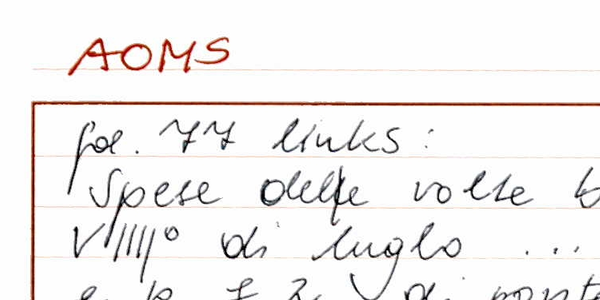 AOMS
fol. 77 links:
Spese delle volte
VIIII° di luglo ...
di